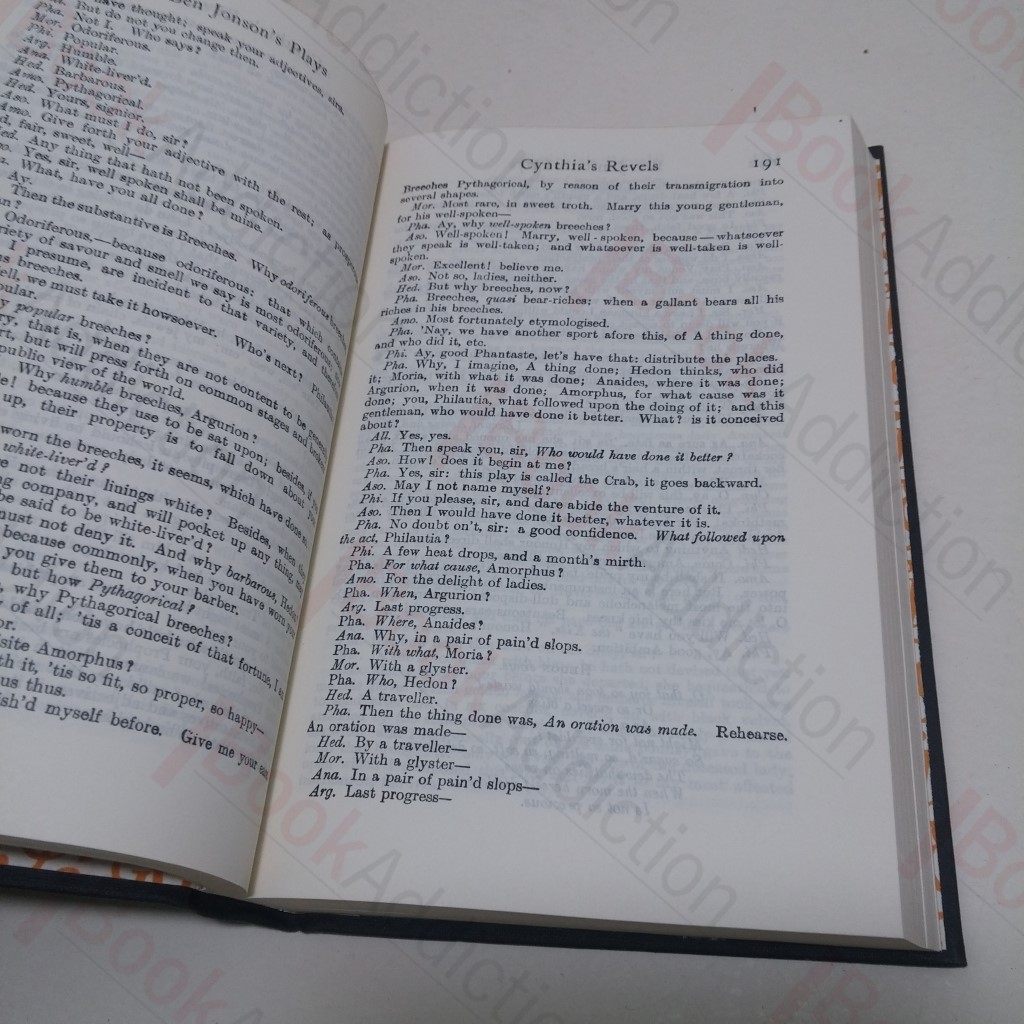 Ben Jonson's Plays
have thought; speak your adjectives, sirs.
Pha. But do you change then.
Mor. Not I. Who says?
Phi. Odoriferous.
Arg. Popular.
Humble.
Ana. White-liver'd.
Hed. Barbarous.
Amo. Pythagorical.
Hed. Yours, signior.
Aso. What must I do, sir?
Amo. Give forth your adjective with the rest; as
fair, sweet, well—
Hed. Any thing that hath not been spoken.
Yes, sir, well spoken shall be mine.
What, have you all done?
Ay.
Then the substantive is Breeches. Why odoriferous
Odoriferous,—because odoriferous: that which
variety of savour and smell we say is most odoriferous;
I presume, are incident to that variety, and
breeches.
we must take it howsoever. Who's next?
popular breeches?
that is, when they are not content to be
but will press forth on common stages and
public view of the world.
Why humble breeches, Argurion?
because they use to be sat upon; besides, if
up, their property is to fall down about
worn the breeches, it seems, which have done
white-liver'd?
not their linings white? Besides, when
company, and will pocket up any thing,
be said to be white-liver'd?
must not deny it. And why barbarous,
because commonly, when you have worn
you give them to your barber.
but how Pythagorical?
why Pythagorical breeches?
of all; 'tis a conceit of that fortune, I
Amorphus?
it, 'tis so fit, so proper, so happy—
us thus.
myself before. Give me your
Cynthia's Revels 191
Breeches Pythagorical, by reason of their transmigration into
several shapes.
Mor. Most rare, in sweet troth. Marry this young gentleman,
for his well-spoken—
Pha. Ay, why well-spoken breeches?
Aso. Well-spoken! Marry, well-spoken, because—whatsoever
they speak is well-taken; and whatsoever is well-taken is well-
spoken.
Mor. Excellent! believe me.
Aso. Not so, ladies, neither.
Hed. But why breeches, now?
Pha. Breeches, quasi bear-riches; when a gallant bears all his
riches in his breeches.
Amo. Most fortunately etymologised.
Pha. 'Nay, we have another sport afore this, of A thing done,
and who did it, etc.
Phi. Ay, good Phantaste, let's have that: distribute the places.
Pha. Why, I imagine, A thing done; Hedon thinks, who did
it; Moria, with what it was done; Anaides, where it was done;
Argurion, when it was done; Amorphus, for what cause was it
done; you, Philautia, what followed upon the doing of it; and this
gentleman, who would have done it better. What? is it conceived
about?
All. Yes, yes.
Pha. Then speak you, sir, Who would have done it better?
Aso. How! does it begin at me?
Pha. Yes, sir: this play is called the Crab, it goes backward.
Aso. May I not name myself?
Phi. If you please, sir, and dare abide the venture of it.
Aso. Then I would have done it better, whatever it is.
Pha. No doubt on't, sir: a good confidence. What followed upon
the act, Philautia?
Phi. A few heat drops, and a month's mirth.
Pha. For what cause, Amorphus?
Amo. For the delight of ladies.
Pha. When, Argurion?
Arg. Last progress.
Pha. Where, Anaides?
Ana. Why, in a pair of pain'd slops.
Pha. With what, Moria?
Mor. With a glyster.
Pha. Who, Hedon?
Hed. A traveller.
Pha. Then the thing done was, An oration was made. Rehearse.
An oration was made—
Hed. By a traveller—
Mor. With a glyster—
Ana. In a pair of pain'd slops—
Arg. Last progress—
BookAddiction